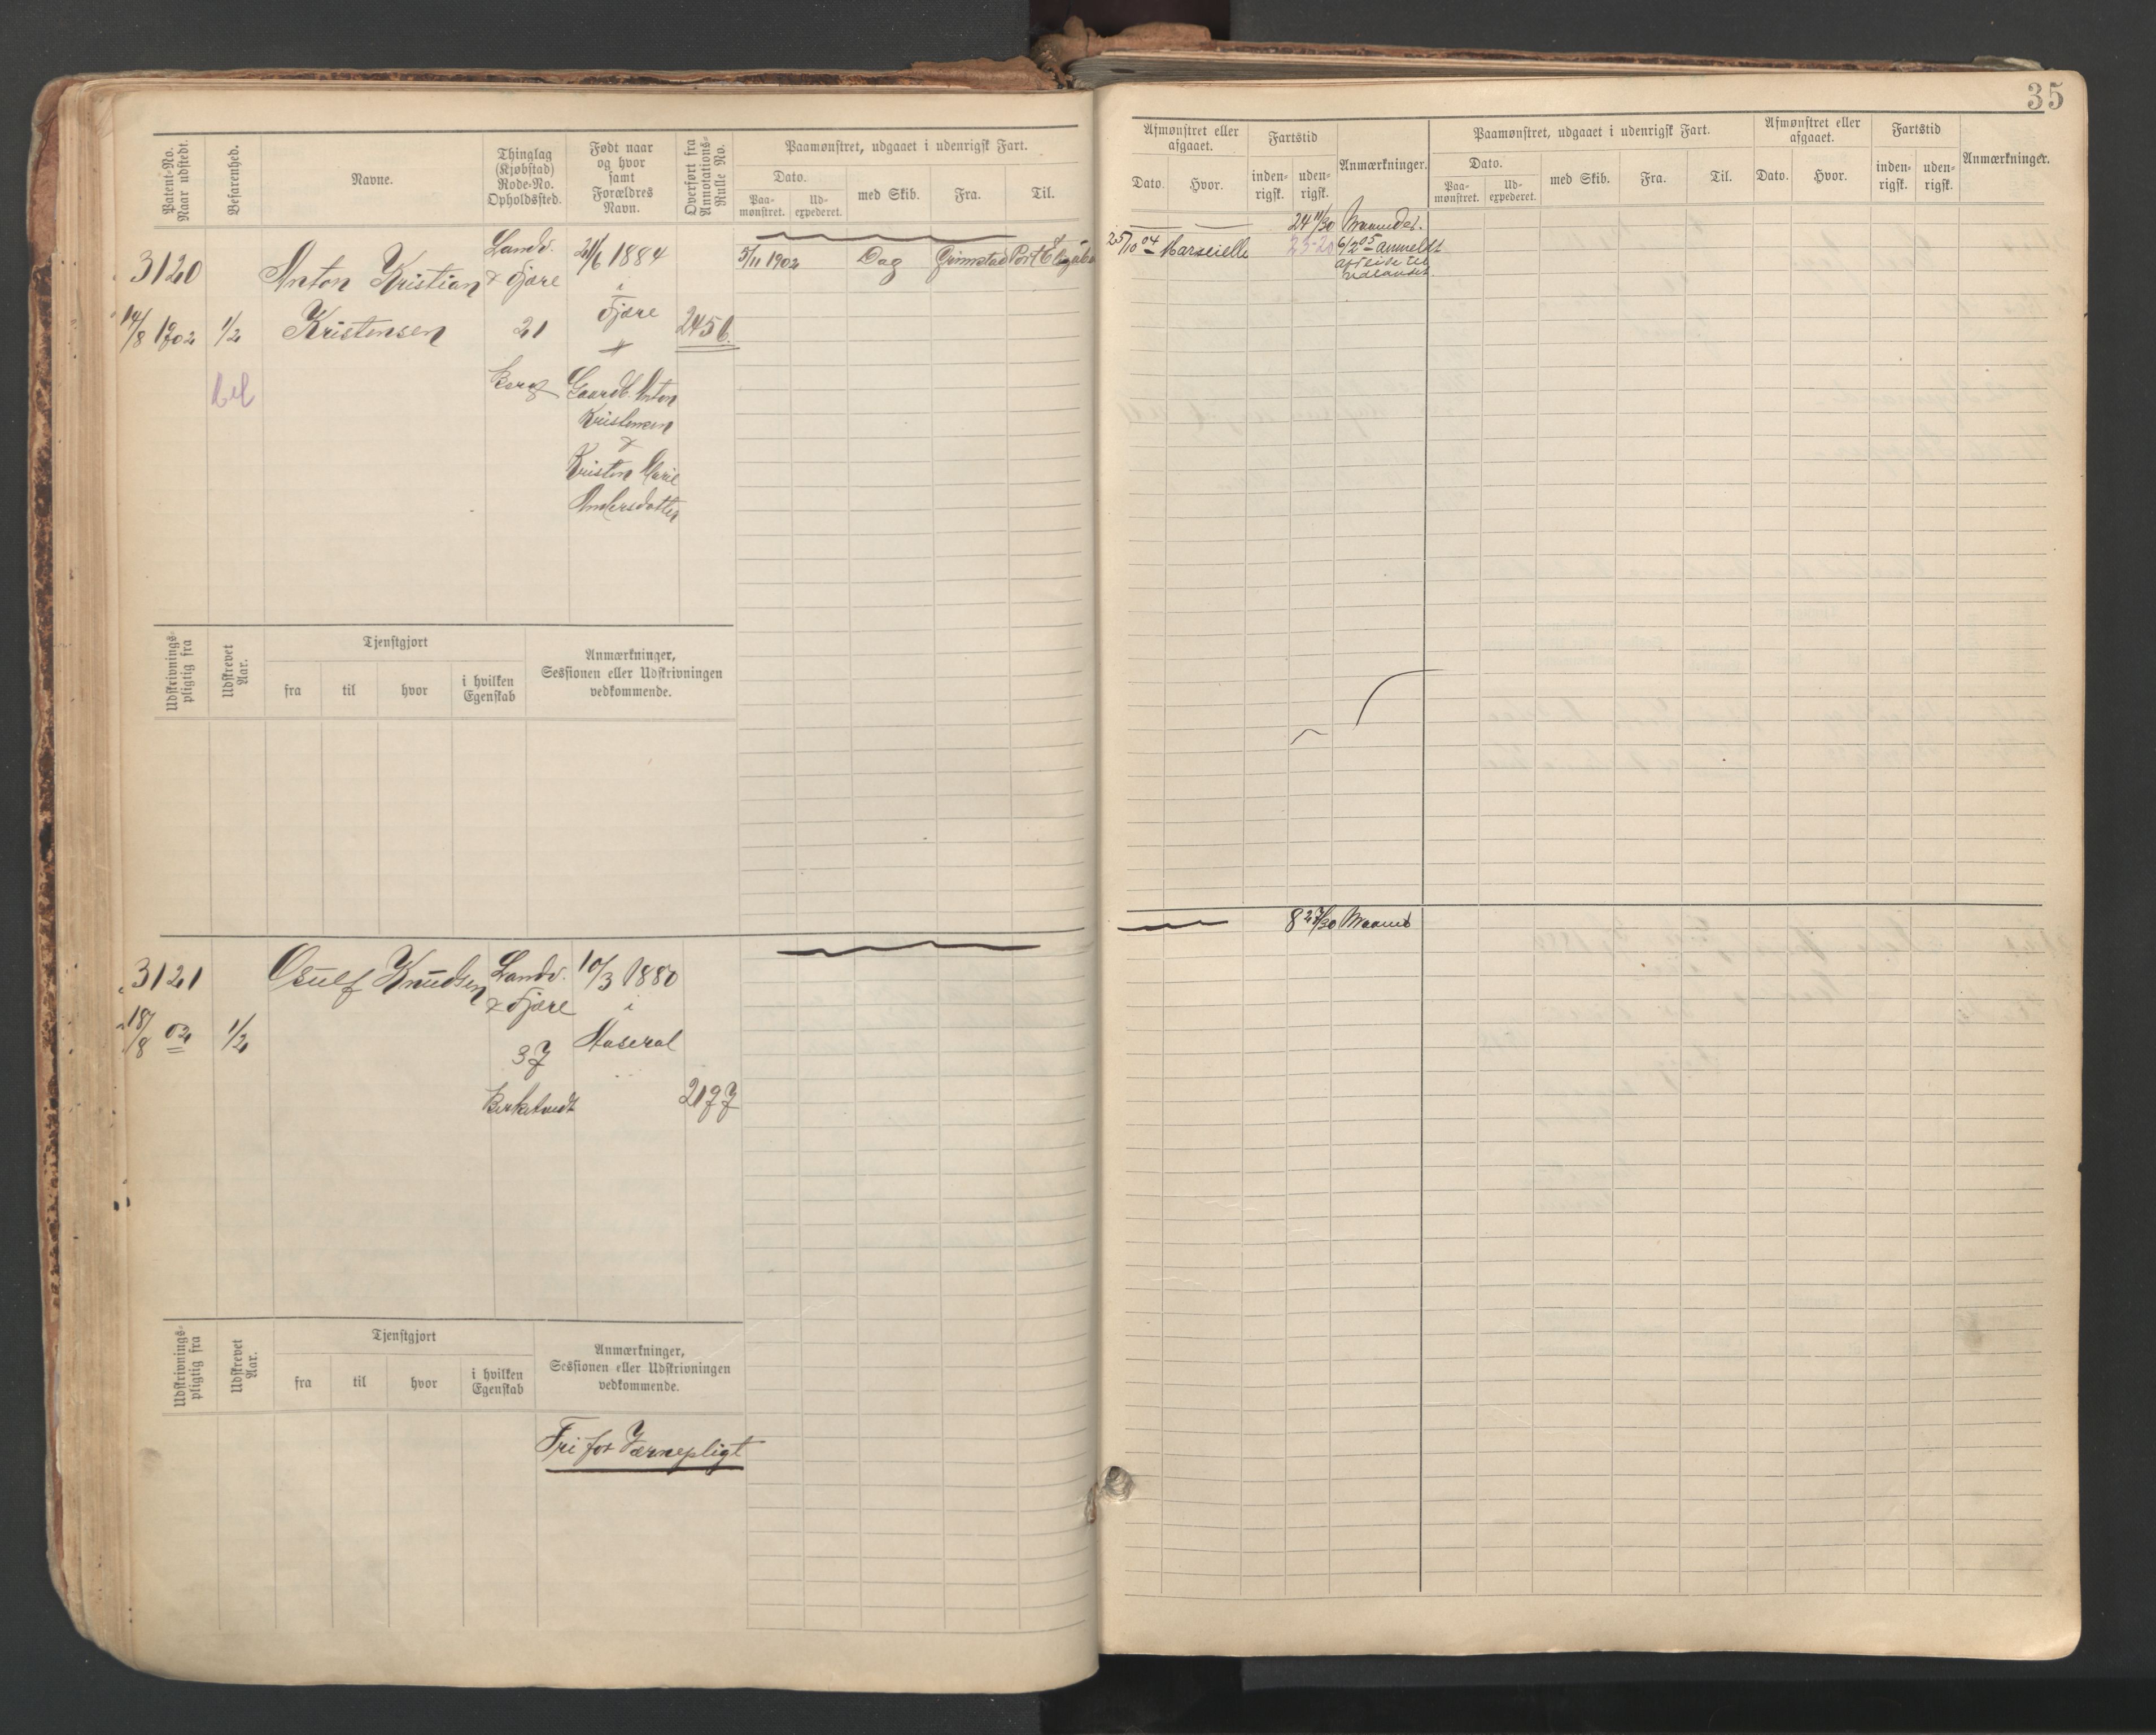 35
Patent-No. Naar udstedt.
Befarenhed.
Navne.
Thinglag (Kjøbstad) Rode-No. Opholdssted.
Født naar og hvor samt Forældres Navn.
Overført fra Annotations-Rulle No.
Paamønstret, udgaaet i udenrigsk Fart.
Dato.
Paa-mønstret.
Ud-expederet.
med Skib.
Fra.
Til.
Afmønstret eller afgaaet.
Dato.
Hvor.
Fartstid
inden-rigsk.
uden-rigsk.
Anmærkninger.
Paamønstret, udgaaet i udenrigsk Fart.
Dato.
Paa-mønstret.
Ud-expederet.
med Skib.
Fra.
Til.
Afmønstret eller afgaaet.
Dato.
Hvor.
Fartstid
inden-rigsk.
uden-rigsk.
Anmærkninger.
3120
14/8 1902
1/2
Anton Kristian
Kristensen
Landv.
& Fjære
21
Berg
21/6 1884
i
Fjære
Gaardb. Anton
Kristensen
&
Kristen Marie
Andersdatter
2456.
5/11 1902
Dag
Grimstad
Port Elizabeth
24 11/30 Maaneder.
25/10 04
Marseielle
23-20
6/2 05 anmeldt
afreise til
udlandet
Udskrivnings-pligtig fra
Udskrevet Aar.
Tjenstgjort
fra
til
hvor
i hvilken Egenskab
Anmærkninger, Sessionen eller Udskrivningen vedkommende.
3121
18/8 02
1/2
Osulf Knudsen
Landv.
& Fjære
37
10/3 1880
i
Aaseral
2197
8 27/30 Maaned
Udskrivnings-pligtig fra
Udskrevet Aar.
Tjenstgjort
fra
til
hvor
i hvilken Egenskab
Anmærkninger, Sessionen eller Udskrivningen vedkommende.
Fri for Værnepligt